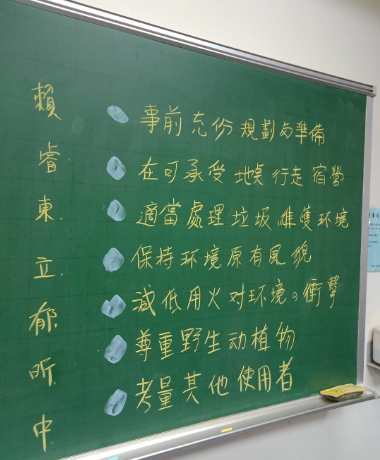 賴睿東立郁昕中
事前充份規劃与準備
在可承受地点行走宿營
適當處理垃圾維護环境
保持环境原有風貌
減低用火对环境的衝擊
尊重野生动植物
考量其他使用者